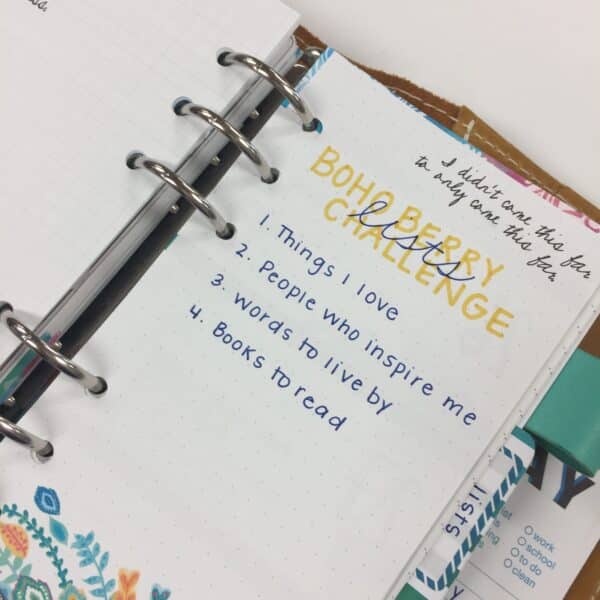 I didn't come this far
to only come this far
BOHO BERRY
lists
CHALLENGE
1. Things I love
2. People who inspire me
3. words to live by
4. Books to read
lists
work
school
to do
clean